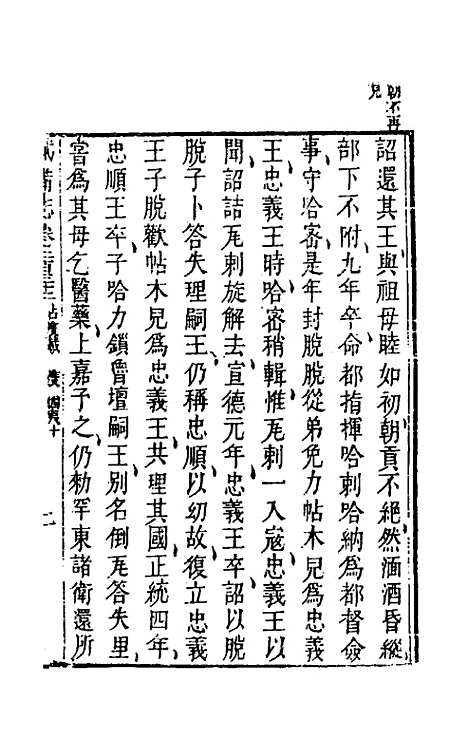 朝不再
見
詔還其王與祖母睦如初朝貢不絕然湎酒昏縱
部下不附九年卒命都指揮哈剌哈納爲都督僉
事守哈密是年封脫脫從弟免力帖木兒爲忠義
王忠義王時哈密稍輯惟瓦剌一入寇忠義王以
聞詔詰瓦剌旋解去宣德元年忠義王卒詔以脫
脫子卜答失理嗣王仍稱忠順以幼故復立忠義
王子脫歡帖木兒爲忠義王共理其國正統四年
忠順王卒子哈力鎖魯壇嗣王別名倒瓦答失里
嘗爲其母乞醫藥上嘉子之仍勑罕東諸衛還所
武備志卷二百二十三 占度載 度 四夷十